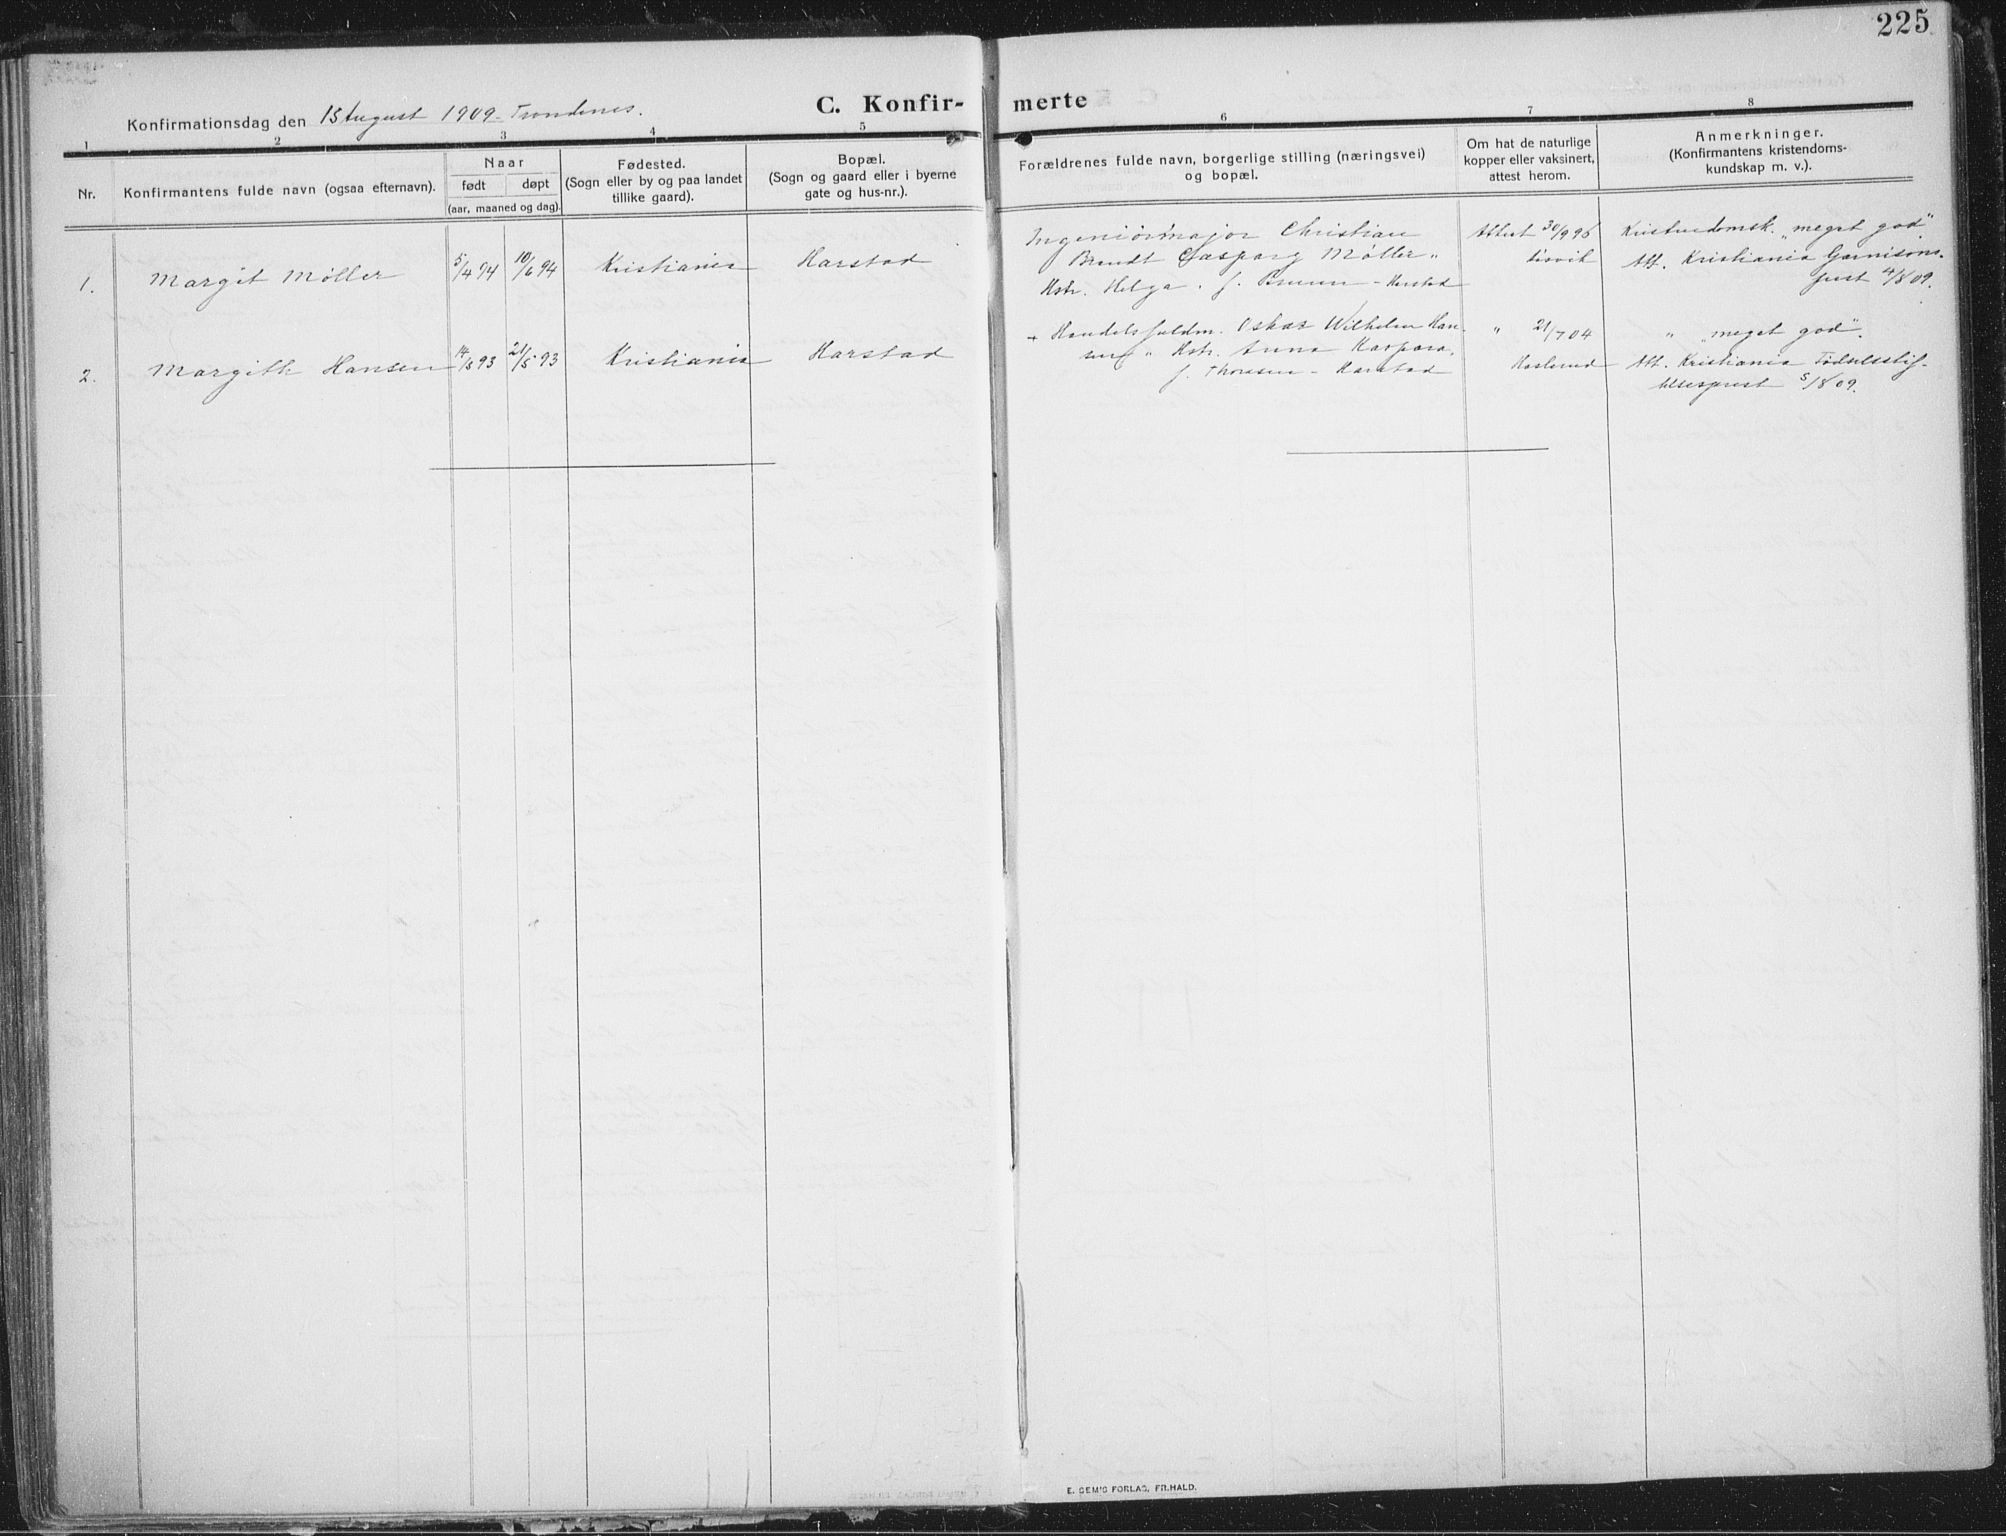 225
C. Konfir- merte
Konfirmationsdag den 15 August 1909 - Trondenes.
1 2 3 4 5 6 7 8
Nr.
Konfirmantens fulde navn (ogsaa efternavn).
Naar
født døpt
(aar, maaned og dag).
Fødested.
(Sogn eller by og paa landet
tillike gaard).
Bopæl.
(Sogn og gaard eller i byerne
gate og hus-nr.).
Forældrenes fulde navn, borgerlige stilling (næringsvei)
og bopæl.
Om hat de naturlige
kopper eller vaksinert,
attest herom.
Anmerkninger.
(Konfirmantens kristendoms-
kundskap m. v.).
1. Margit Møller 5/4 94 10/6 94 Kristiania Harstad
Ingeniørmajor Christian
Berndt Caspary Møller "
Hstr. Helga f. Bruun - Harstad
Attest 30/9 96
Kristendomsk. "meget god".
Att. Kristiania Garnisons-
prest 4/8 09.
2. Margith Hansen 93 21/5 93 Kristiania Harstad
+ Handelsfuldm. Oskar Wilhelm Han-
sen " Hstr. Anna Kaspara
f. Thoresen - Harstad
" 21/7 04
Haslerud
" "meget god".
Att. Kristiania Fødselsstif-
telsesprest 5/8 09.
E. SEM'S FORLAG, FR.HALD.